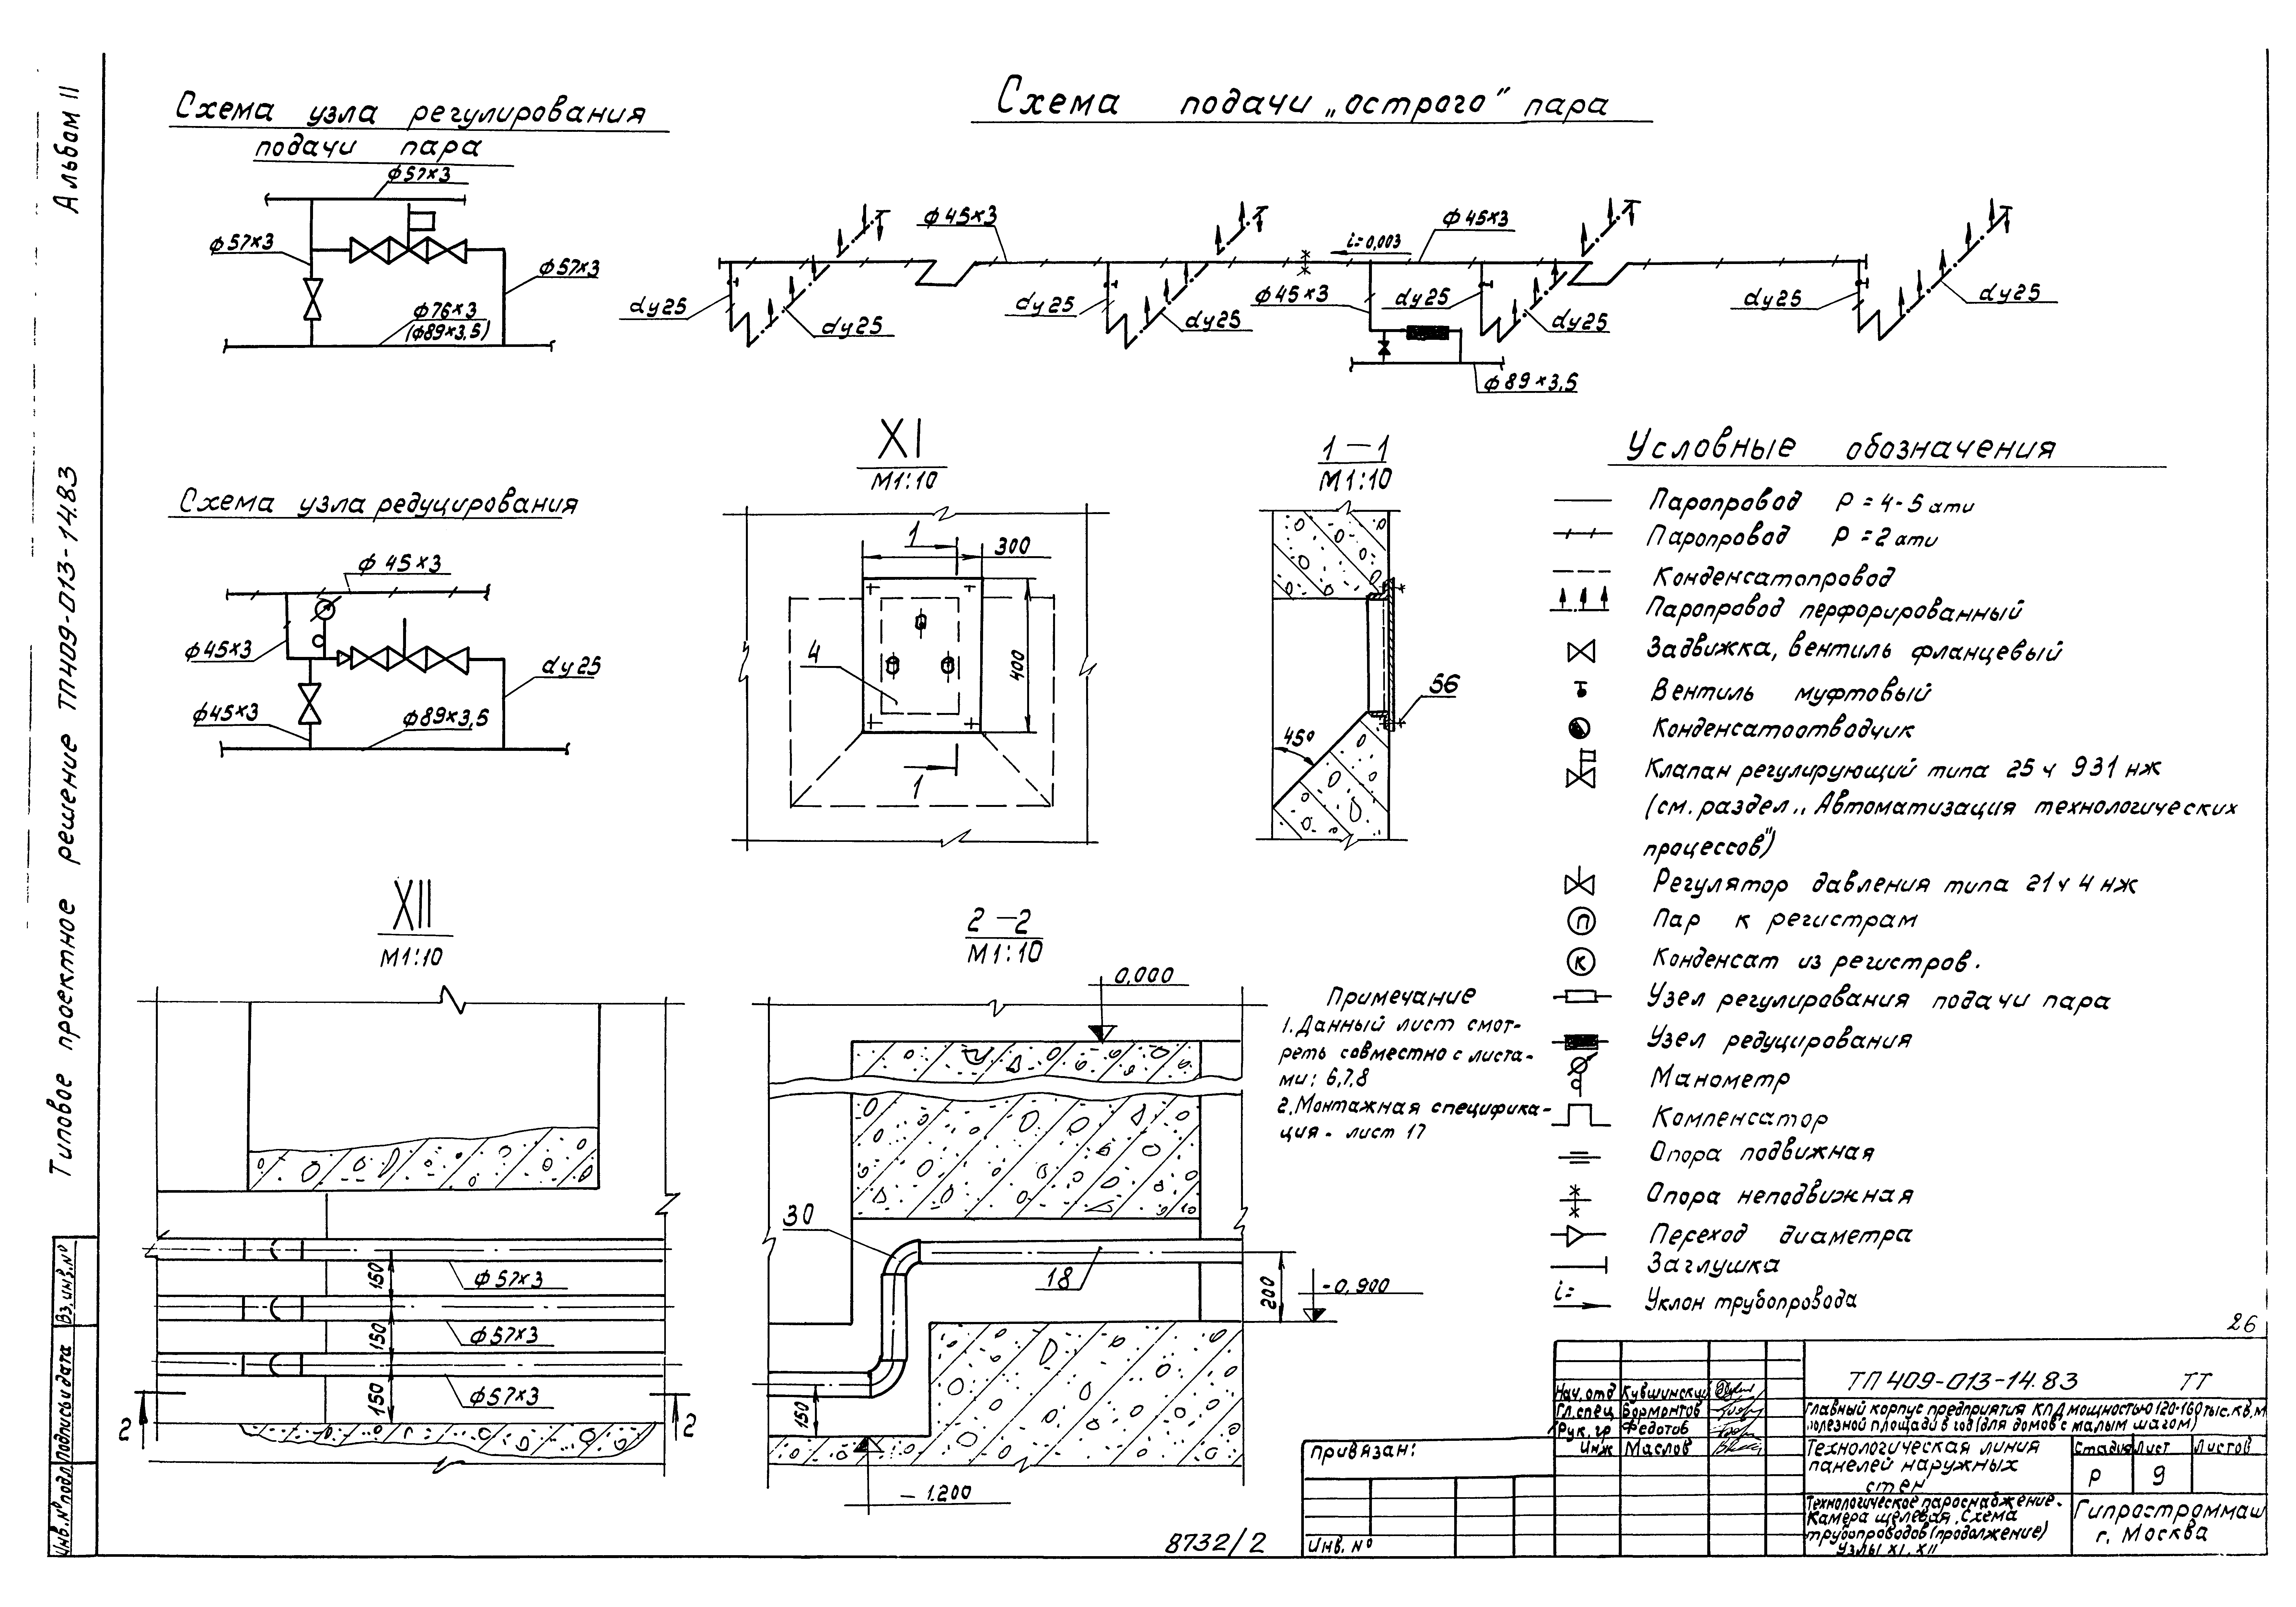 Альбом II
Типовое проектное решение ТП409-013-14.83
Вз. инв. №
Подпись и дата
Инв. № подл.
Схема узла регулирования
подачи пара
ф57×3
ф57×3
ф57×3
ф76×3
(ф89×3,5)
Схема подачи „острого" пара
ф45×3
i=0,003
ф45×3
dу25
dу25
dу25
dу25
ф45×3
dу25
dу25
dу25
dу25
ф89×3,5
Схема узла редуцирования
ф45×3
ф45×3
dу25
ф45×3
ф89×3,5
XI
М1:10
1
300
400
4
1
1-1
М1:10
56
45°
Условные обозначения
Паропровод Р=4-5 ати
Паропровод Р=2 ати
Конденсатопровод
Паропровод перфорированный
Задвижка, вентиль фланцевый
Вентиль муфтовый
Конденсатоотводчик
Клапан регулирующий типа 25ч 931 нж
(см. раздел „Автоматизация технологических
процессов")
Регулятор давления типа 21ч 4 нж
П Пар к регистрам
К Конденсат из регистров.
Узел регулирования подачи пара
Узел редуцирования
Манометр
Компенсатор
Опора подвижная
Опора неподвижная
Переход диаметра
Заглушка
i= Уклон трубопровода
XII
М1:10
150
ф57×3
150
ф57×3
150
ф57×3
2
2
2-2
М1:10
0,000
30
18
200
-0,900
150
-1.200
Примечание
1. Данный лист смот-
реть совместно с листа-
ми: 6,7,8
2. Монтажная специфика-
ция - лист 17
26
Нач. отд Кувшинский
Гл. спец Бормонтов
Рук. гр Федотов
Инж Маслов
ТП 409-013-14.83 ТТ
Главный корпус предприятия КПД мощностью 120-160 тыс. кв. м
полезной площади в год (для домов с малым шагом)
Технологическая линия
панелей наружных
стен
Стадия Лист Листов
Р 9
Технологическое пароснабжение.
Камера щелевая. Схема
трубопроводов (продолжение)
Узлы XI, XII
Гипростроммаш
г. Москва
Привязан:
Инв. №
8732/2